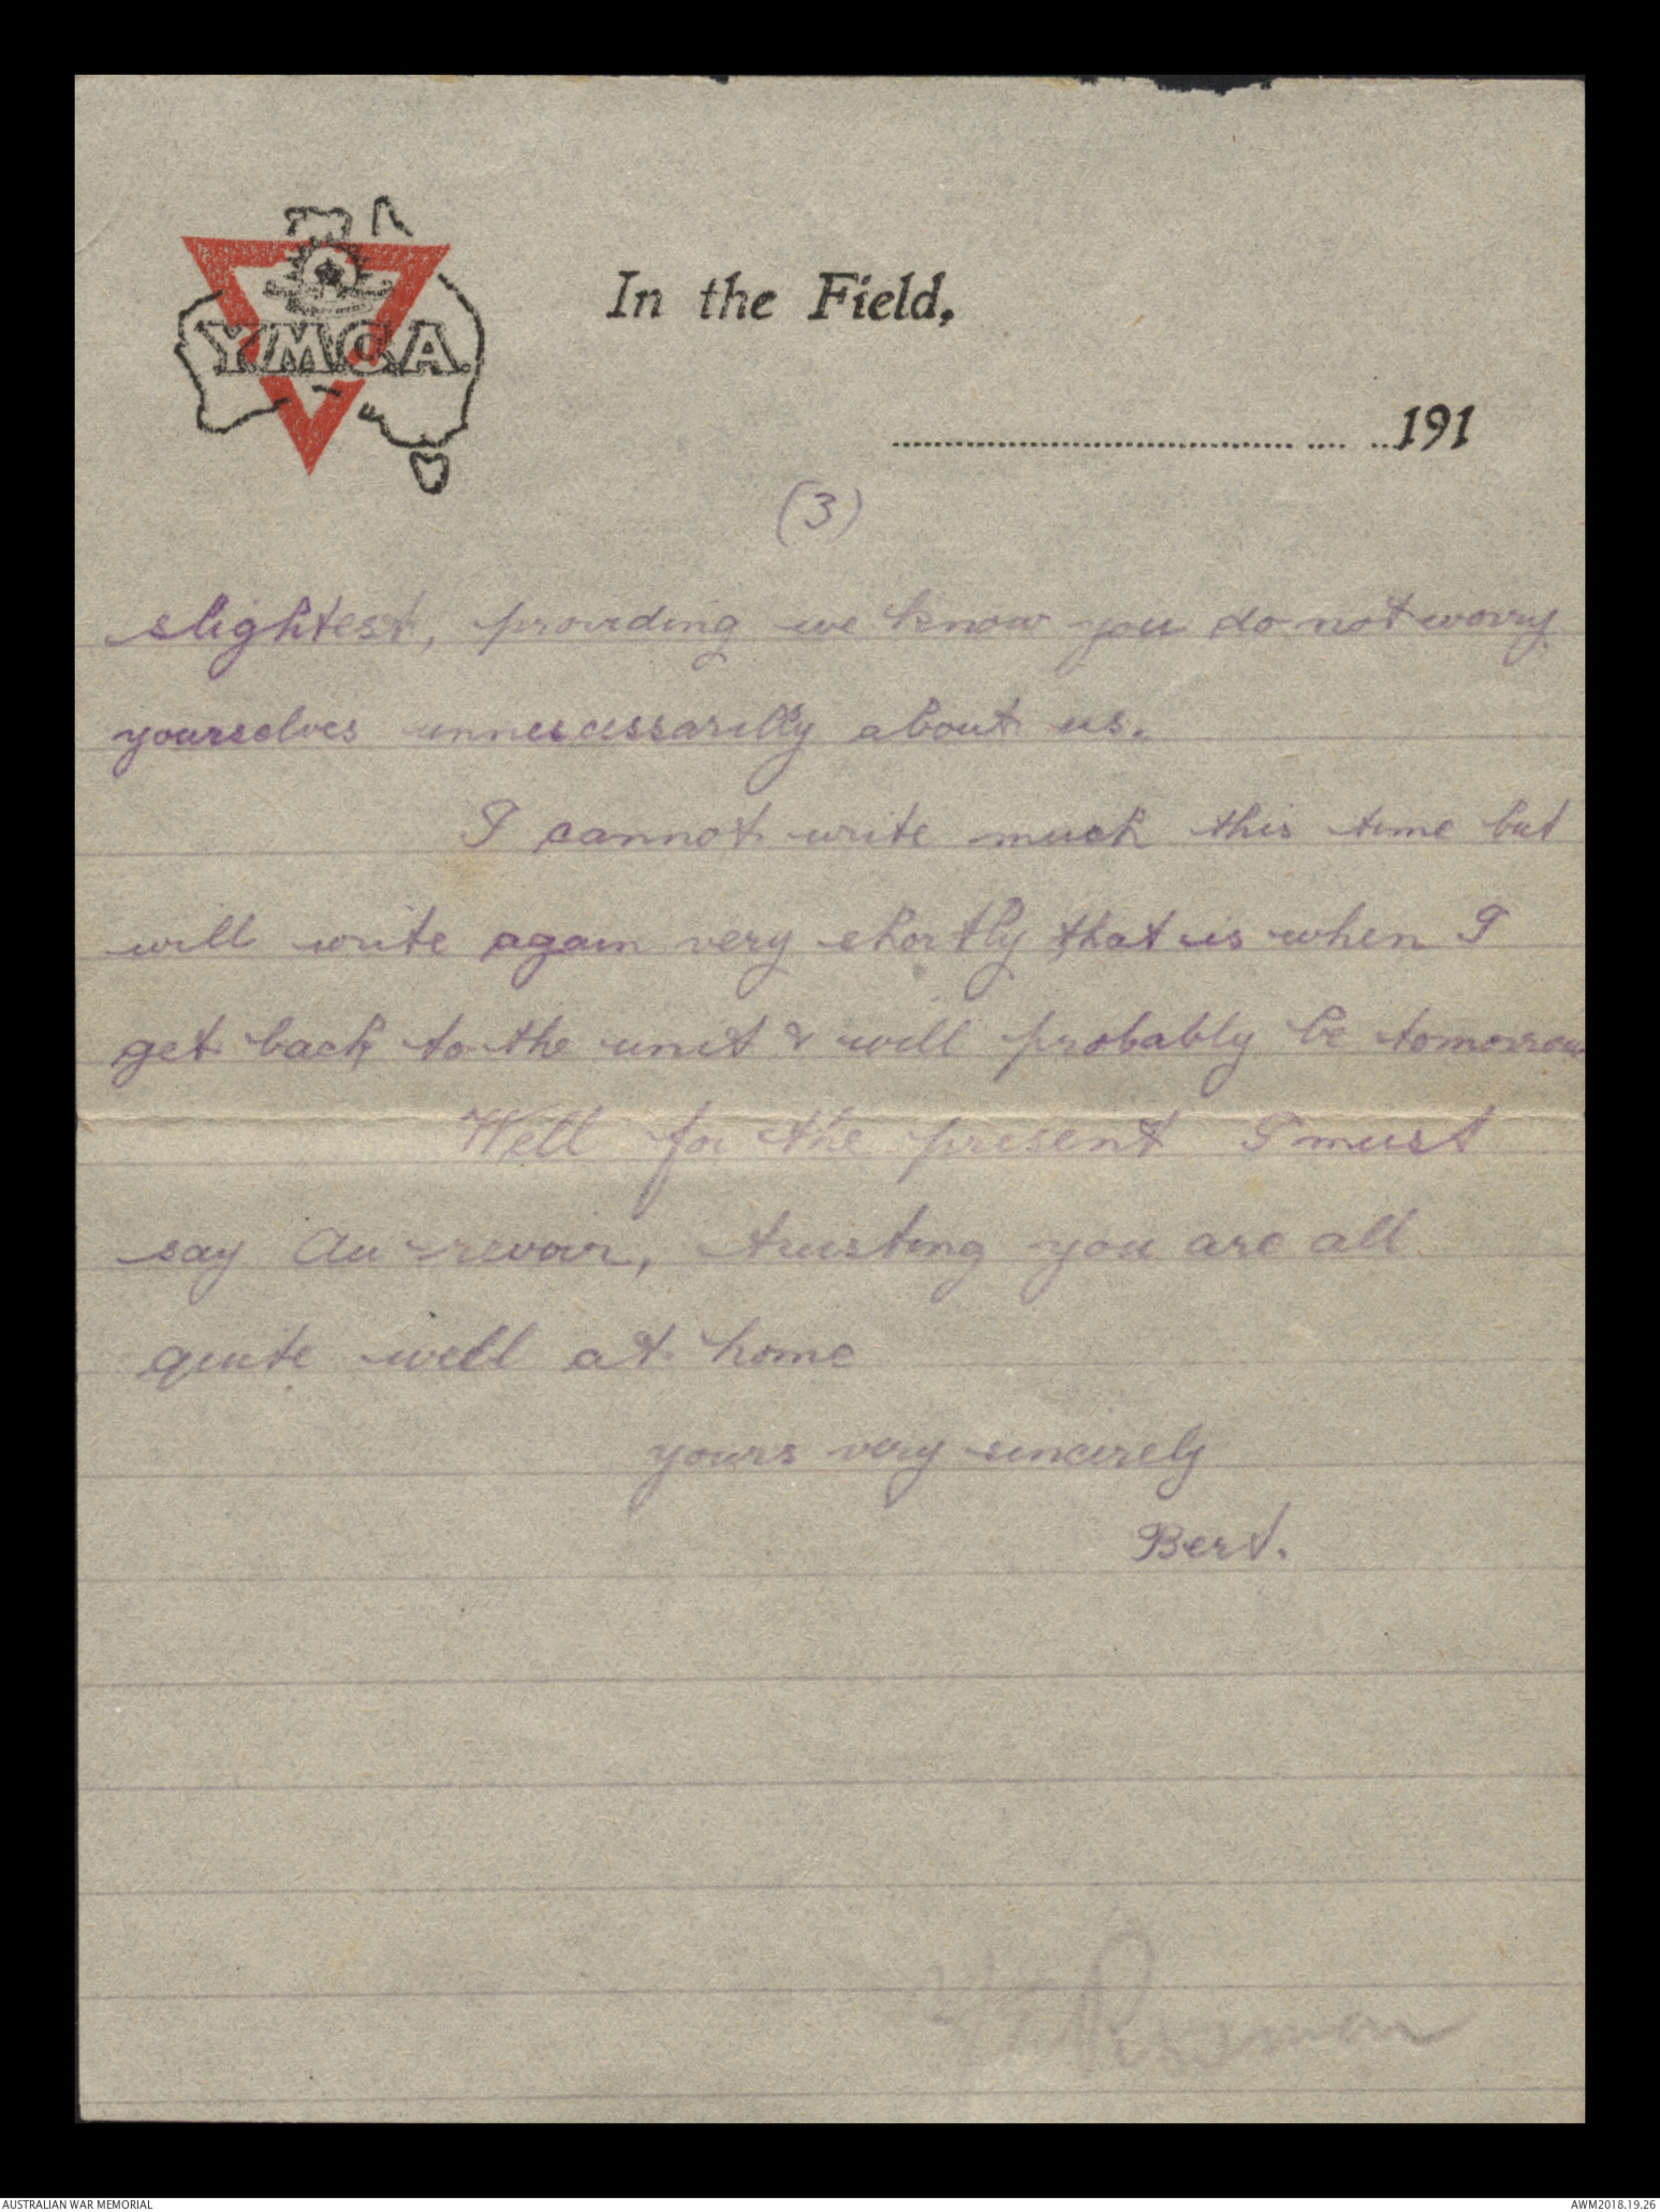 Y.M.C.A.
In the Field,
191
(3)
slightest, providing we know you do not worry
yourselves unnecessarilly about us.
I cannot write much this time but
will write again very shortly that is when I
get back to the unit & will probably be tomorrow
Well for the present I must
say Au-revoir, trusting you are all
quite well at home
yours very sincerely
Bert.
AUSTRALIAN WAR MEMORIAL
AWM2018.19.26